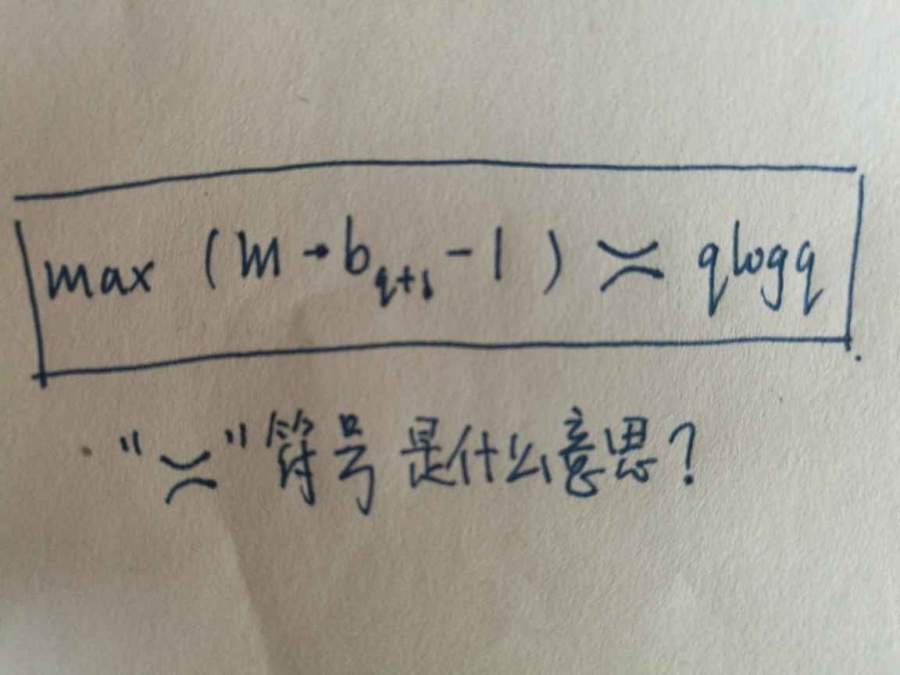 max (m - b_{q+1} - 1) ≍ qlogq
"≍"符号是什么意思?